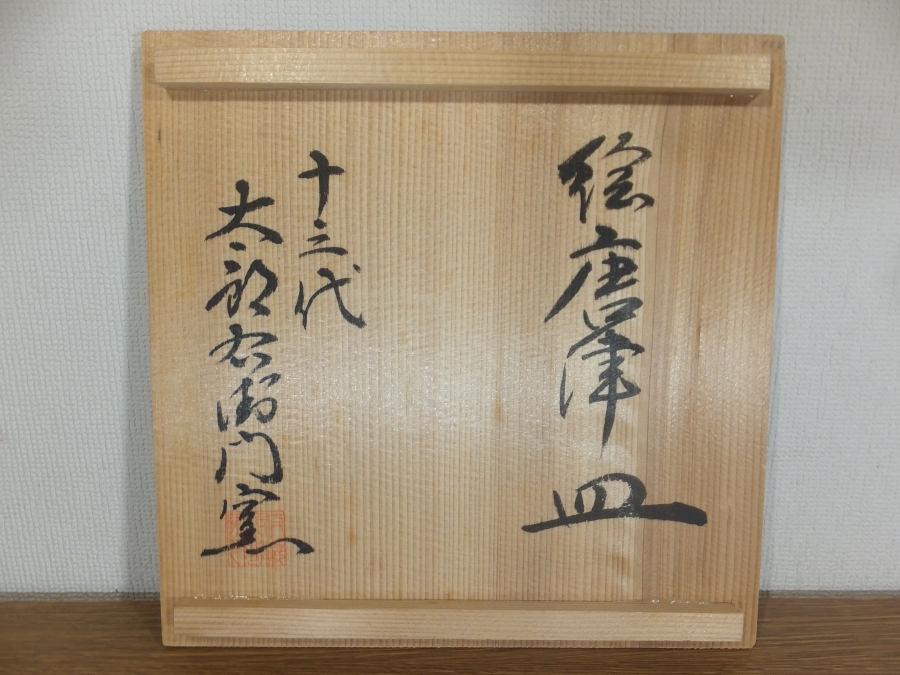 絵唐津皿
十三代
太郎右衛門窯